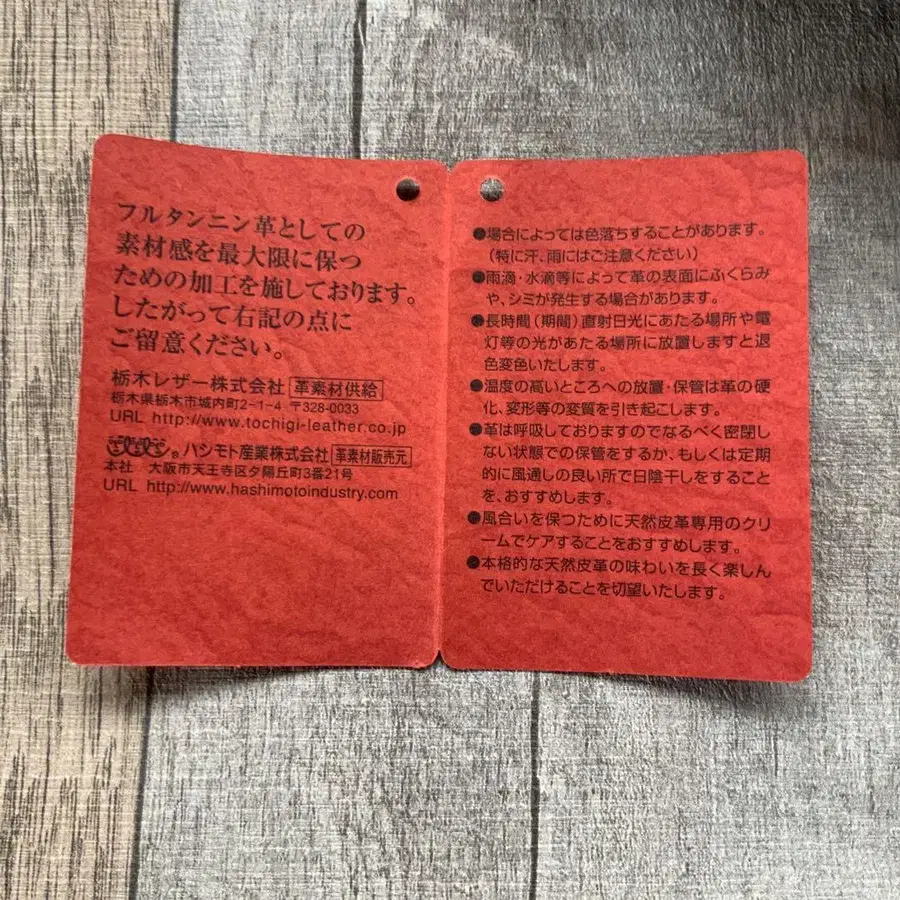 フルタンニン革としての
素材感を最大限に保つ
ための加工を施しております。
したがって右記の点に
ご留意ください。
栃木レザー株式会社 革素材供給
栃木県栃木市城内町2-1-4 〒328-0033
URL http://www.tochigi-leather.co.jp
® ハシモト産業株式会社 革素材販売元
本社 大阪市天王寺区夕陽丘町3番21号
URL http://www.hashimotoindustry.com
●場合によっては色落ちすることがあります。
(特に汗、雨にはご注意ください)
●雨滴・水滴等によって革の表面にふくらみ
や、シミが発生する場合があります。
●長時間(期間)直射日光にあたる場所や電
灯等の光があたる場所に放置しますと退
色変色いたします。
●温度の高いところへの放置・保管は革の硬
化、変形等の変質を引き起こします。
●革は呼吸しておりますのでなるべく密閉し
ない状態での保管をするか、もしくは定期
的に風通しの良い所で日陰干しをすること
を、おすすめします。
●風合いを保つために天然皮革専用のクリ
ームでケアすることをおすすめします。
●本格的な天然皮革の味わいを長く楽しん
でいただけることを切望いたします。